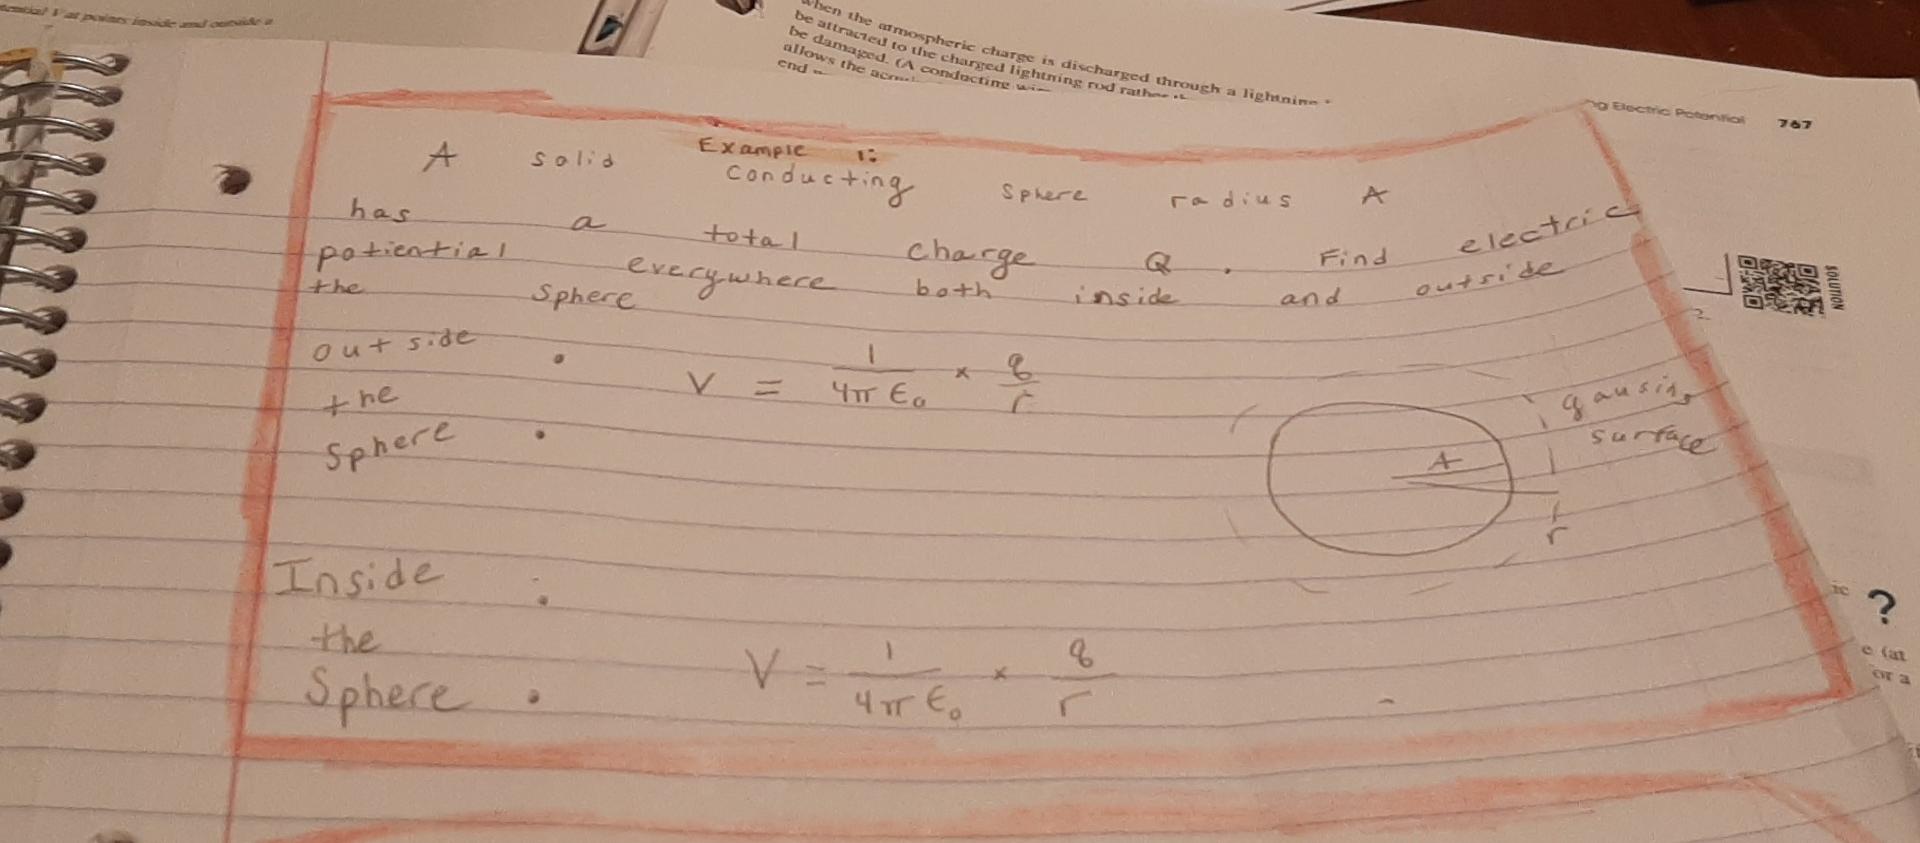 tential V at points inside and outside a
When the atmospheric charge is discharged through a lightning
be attracted to the charged lightning rod rather
be damaged. (A conducting
allows the
end
ng Electric Potential 767
Example 1:
A solid conducting sphere radius A
has a total charge Q. Find electric
potiential everywhere both inside and outside
the sphere
SOLUTION
outside : V = 1 / 4π ε₀ × q / r
the
sphere
gausing
surface
A
r
Inside :
the
Sphere . V = 1 / 4π ε₀ × q / r
?
e (at
or a